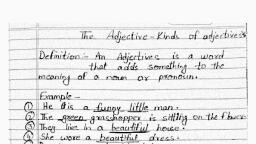 The Adjective - Kinds of adjectives
Definition:- An Adjectives is a word
that adds something to the
meaning of a noun or pronoun.
Example -
① He is a funny little man.
② The green grasshopper is sitting on the flower
③ They live in a beautiful house.
④ She wore a beautiful dress.